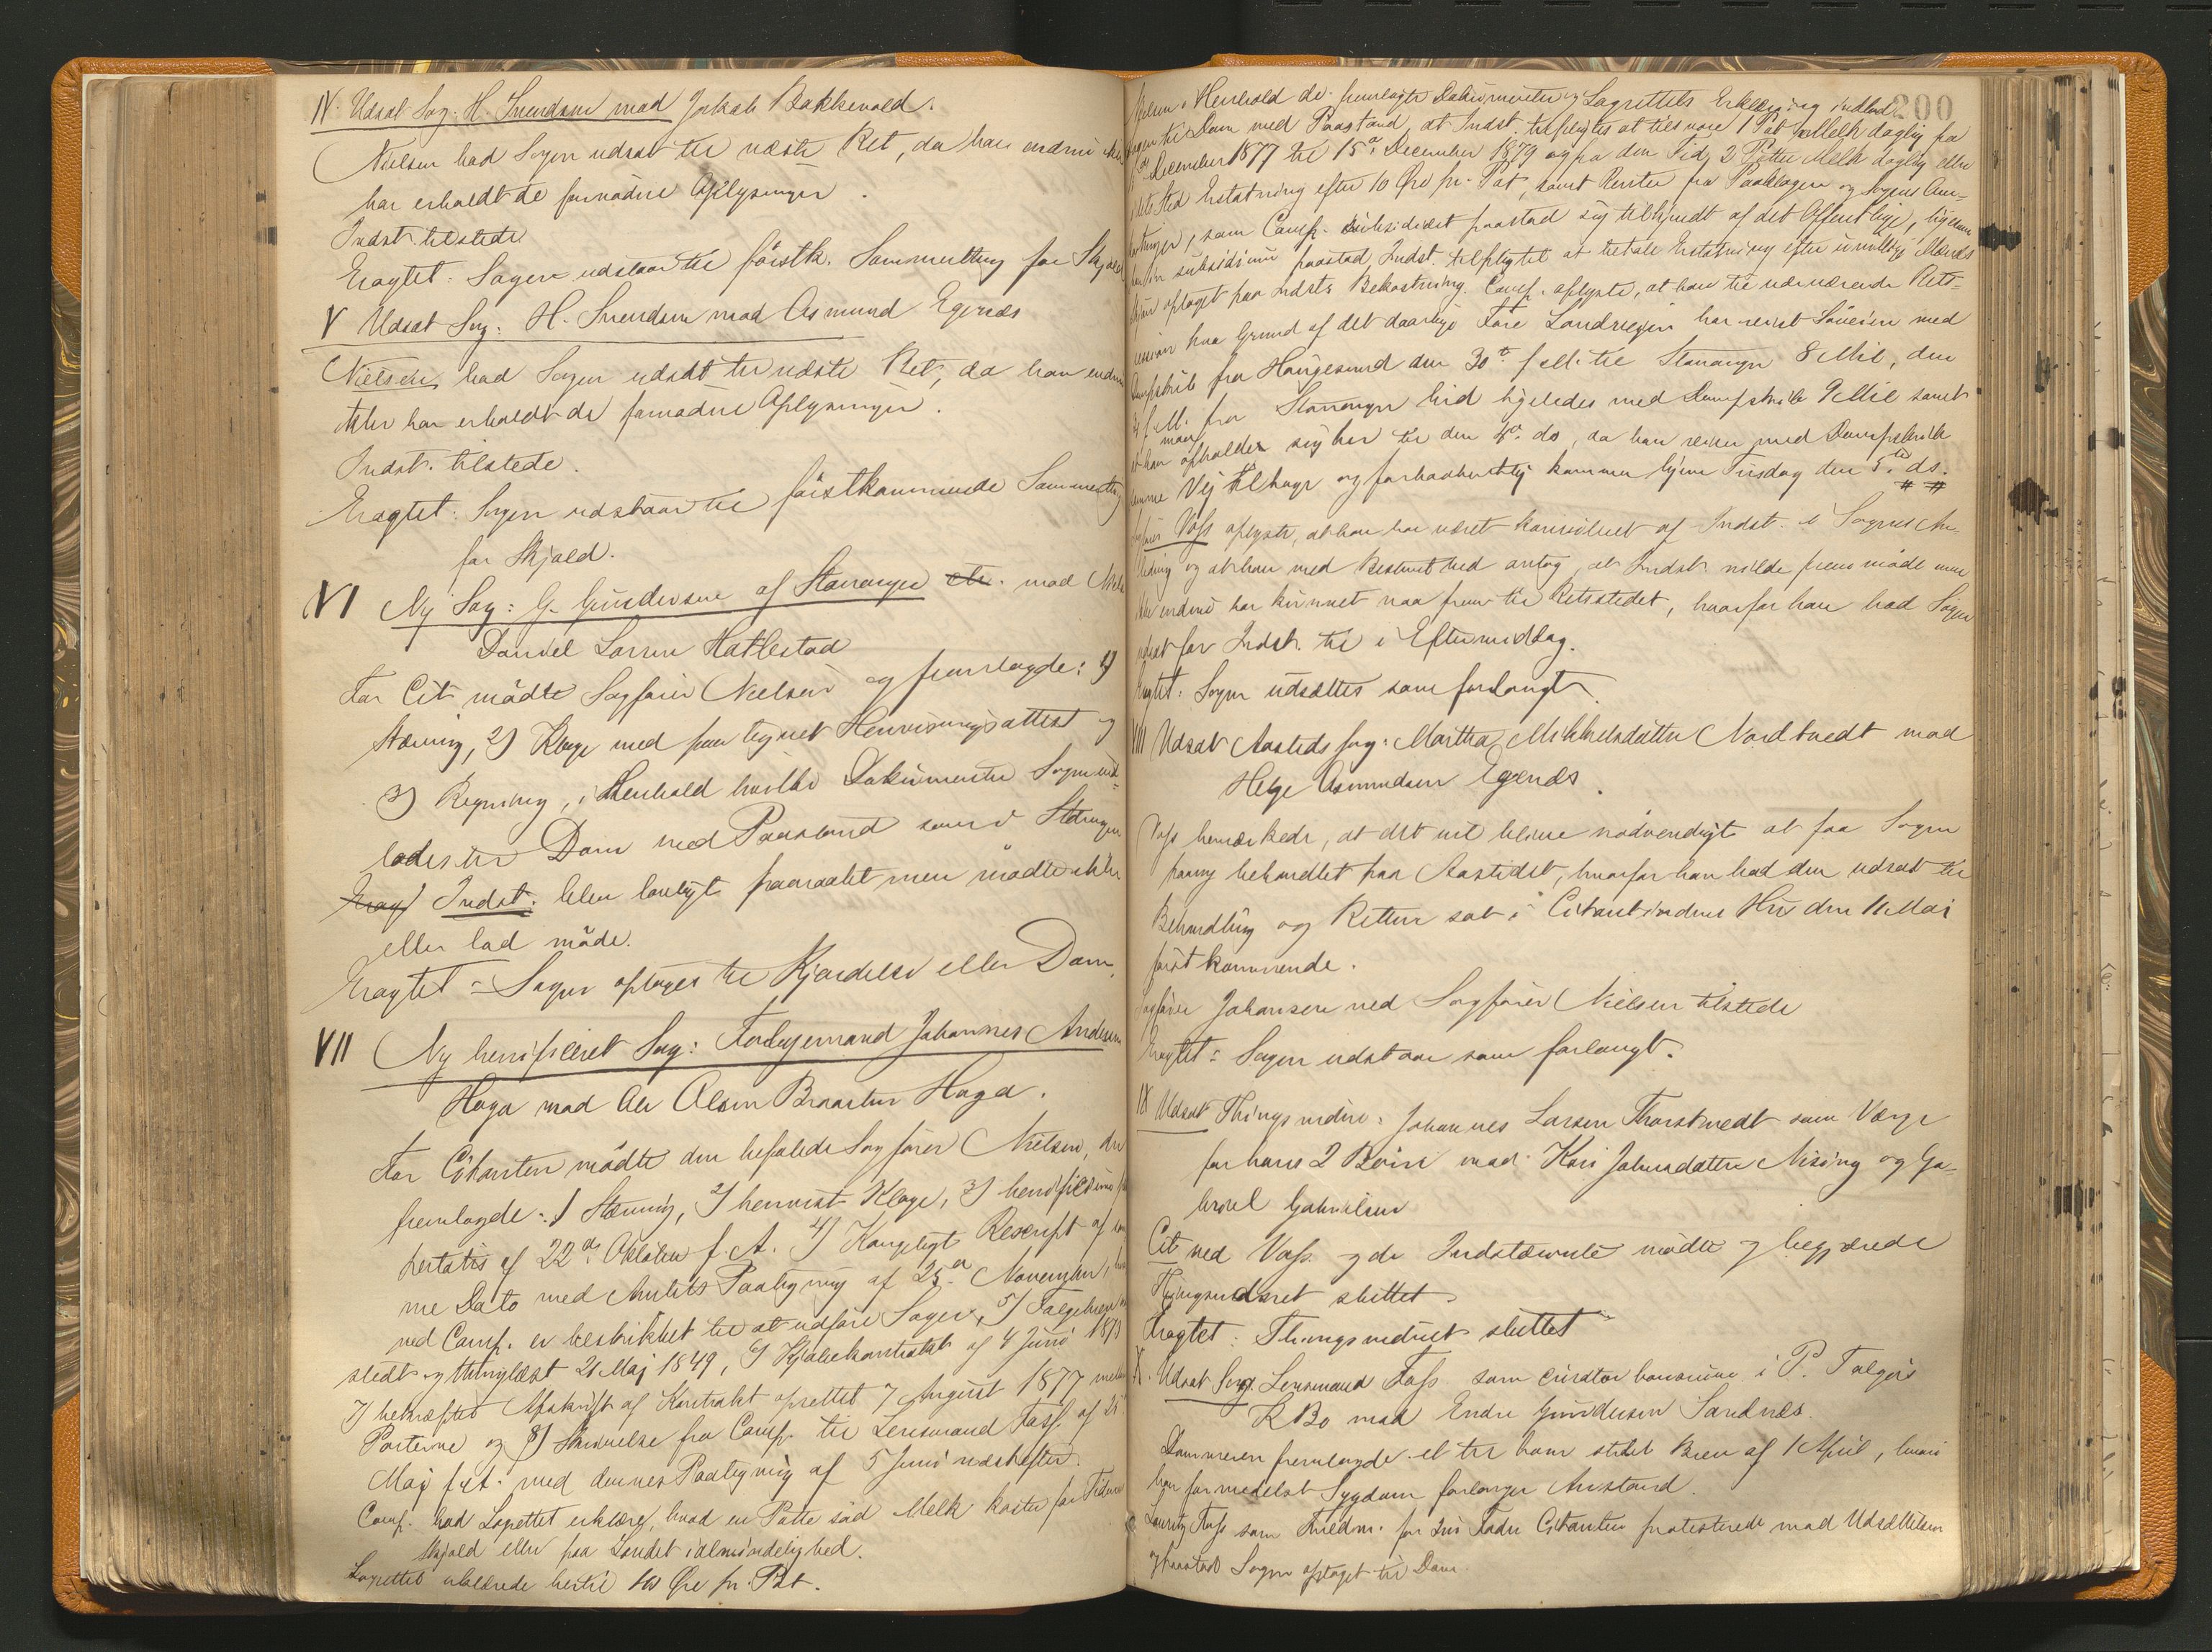 IV. Udsat Sag: H. Svendsen mod Jakob Bakkevold.
Nielsen bad Sagen udsat til næste Ret, da han endnu ikke
har erholdt de fornødne Oplysninger.
Indst. tilstede
Eragtet: Sagen udstaar til førstk. Sammenting for Skjold
V Udsat Sag: H. Svendsen mod Asmund Egenæs
Nielsen bad Sagen udsat til næste Ret, da han endnu
ikke har erholdt de fornødne Oplysninger.
Indst. tilstede.
Eragtet: Sagen udstaar til førstkommende Sammenting
for Skjold.
VI Ny Sag: G. Gundersen af Stavanger etc. mod
Daniel Larsen Hatlestad
For Cit mødte Sagfører Nielsen og fremlagde: 1)
Stævning, 2) Klage med paategnet Henvisningsattest og
3) Regning, i Henhold hvilke Dokumenter Sagen ind-
lodes til Dom med Paastand som i Stævningen
Erag Indst. blev lovligt paaraabt men mødte ikke
eller lod møde.
Eragtet: Sagen optages til Kjendelse eller Dom.
VII Ny beneficeret Sag: Forlagsmand Johannes Andersen
Haga mod Ole Olsen Braaten Haga.
For Citanten mødte den befalede Sagfører Nielsen, der
fremlagde: 1) Stævning, 2) henvist Klage, 3) beneficium
pertatis af 22de Oktober f. A. 4) Kongeligt Rescript af sam
me Dato med Amtets Paategning af 25de November,
ved Comp. er beskikket til at udføre Sagen, 5) Følgebrev
stedt og thinglæst 21 Maj 1849, 6) Kjøbekontrakt af 4 Juni 1873
7) bekræftet Afskrift af Kontrakt oprettet 7 August 1877 mellem
Parterne og 8) Skrivelse fra Comp. til Lensmand Foss af 25
Maj f. A. med dennes Paategning af 5 Juni næstefter.
Comp. bad Lagrettet erklære, hvad en Potte sød Melk koster for Tiden
Skjold eller paa Landet i almindelighed.
Lagrettet erklærede hertil 10 Øre pr. Pot.
200
Nielsen i Henhold de fremlagte Dokumenter og Lagrettets Erklæring indlod
Sagen til Dom med Paastand, at Indst. tilpligtes at tilsvare 1 Pot Melk daglig fra
December 1877 til 15de December 1879 og fra den Tid 2 Potter Melk daglig eller
i dets Sted Erstatning efter 10 Øre pr. Pot, samt Renter fra Paaklagen og Sagens Om-
kostninger, som Comp. subsidiært paastod sig tilkjendt af det Offentlige, ligesom
han subsidiært paastod Indst. tilpligtet at betale Erstatning efter uvillige Mænds
Skjøn optaget paa Indsts Bekostning. Comp. oplyste, at han til nærværende Rets-
session paa Grund af det daarlige Føre Landvejen har reist Søveien med
Dampskib fra Haugesund den 30te f. M. til Stavanger 8 Mil, den
31 f. M. fra Stavanger hid ligeledes med Dampskib 9 Mil samt
at han maa opholde sig her til den 4de ds, da han reiser med Dampskib
samme Vej tilbage og forhaabentlig kommer hjem Tirsdag den 5te ds.
Sagfører Voss oplyste, at han har været konsuleret af Indst. i Sagens An-
ledning og at han med Bestemthed antog, at Indst. vilde fremmøde men
ikke endnu har kunnet naa frem til Retsstedet, hvorfor han bad Sagen
udsat for Indst. til i Eftermiddag.
Eragtet: Sagen udsættes som forlangt.
VIII Udsat Aastedssag: Martha Mikkelsdatter Nordtvedt mod
Helge Asmundsen Egenæs.
Voss bemærkede, at det vil blive nødvendigt at faa Sagen
paany behandlet paa Aastedet, hvorfor han bad den udsat til
Behandling og Retten sat i Citantindens Hus den 11 Maj
førstkommende.
Sagfører Johansen ved Sagfører Nielsen tilstede
Eragtet: Sagen udstaar som forlangt.
IX Udsat Thingsvidne: Johannes Larsen Thorstvedt som Værge
for hans 2 Børn mod Kari Johnsdatter Nising og Ga-
briel Gabrielsen
Cit ved Voss og de Indstævnte mødte og begjærede
Thingsvidnet sluttet.
Eragtet: Thingsvidnet sluttet
X. Udsat Sag: Lensmand Foss som curator bonorum i P. Talgøs
KBo mod Endre Gundersen Sandnæs.
Dommeren fremlagde et til ham stilet Brev af 1 April, hvori
han formedelst Sygdom forlanger Anstand.
Lauritz Foss som Fuldm. for sin Fader Citanten protesterede mod Udsættelsen
og paastod Sagen optaget til Dom.